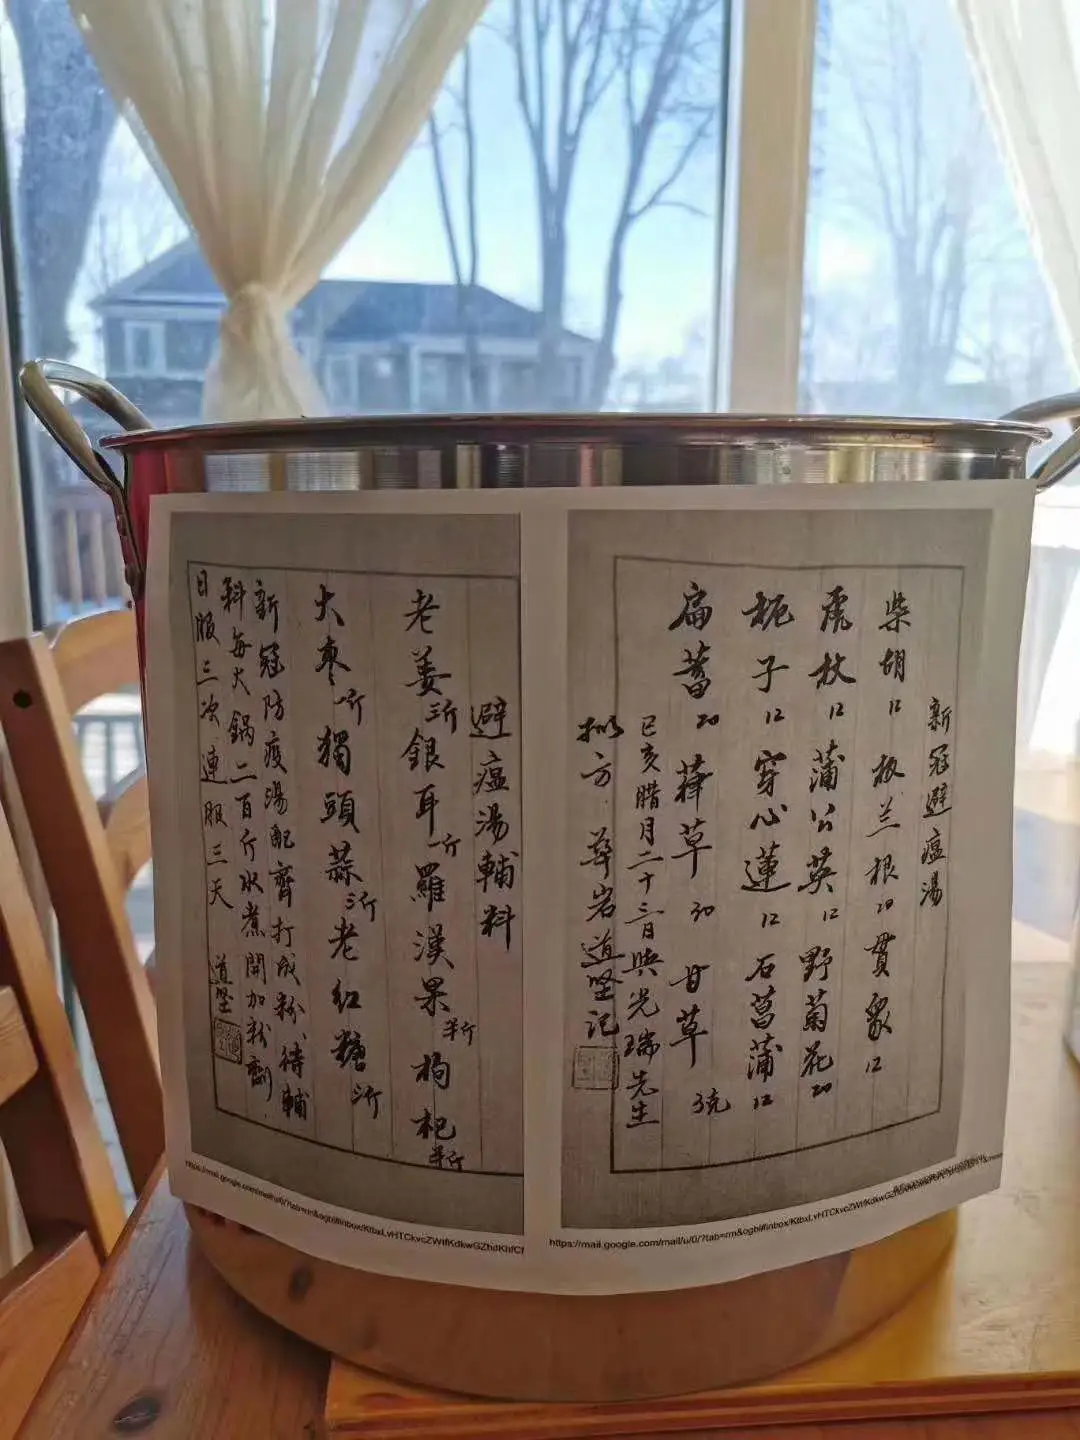 新冠避瘟湯
柴胡12 板兰根20 貫衆12
虎杖12 蒲公英12 野菊花20
栀子12 穿心蓮12 石菖蒲12
扁蓄20 葎草30 甘草3克
己亥腊月二十三日與光瑞先生
拟方 華岩道坚记
避瘟湯輔料
老姜三斤 銀耳一斤 羅漢果半斤 枸杞半斤
大枣一斤 獨頭蒜三斤 老红糖三斤
新冠防疫湯配齊打成粉、待輔
料每大鍋二百斤水煮開加粉劑
日服三次 連服三天 道坚
https://mail.google.com/mail/u/0/?tab=rm&ogbl#inbox/
https://mail.google.com/mail/u/0/?tab=rm&ogbl#inbox/